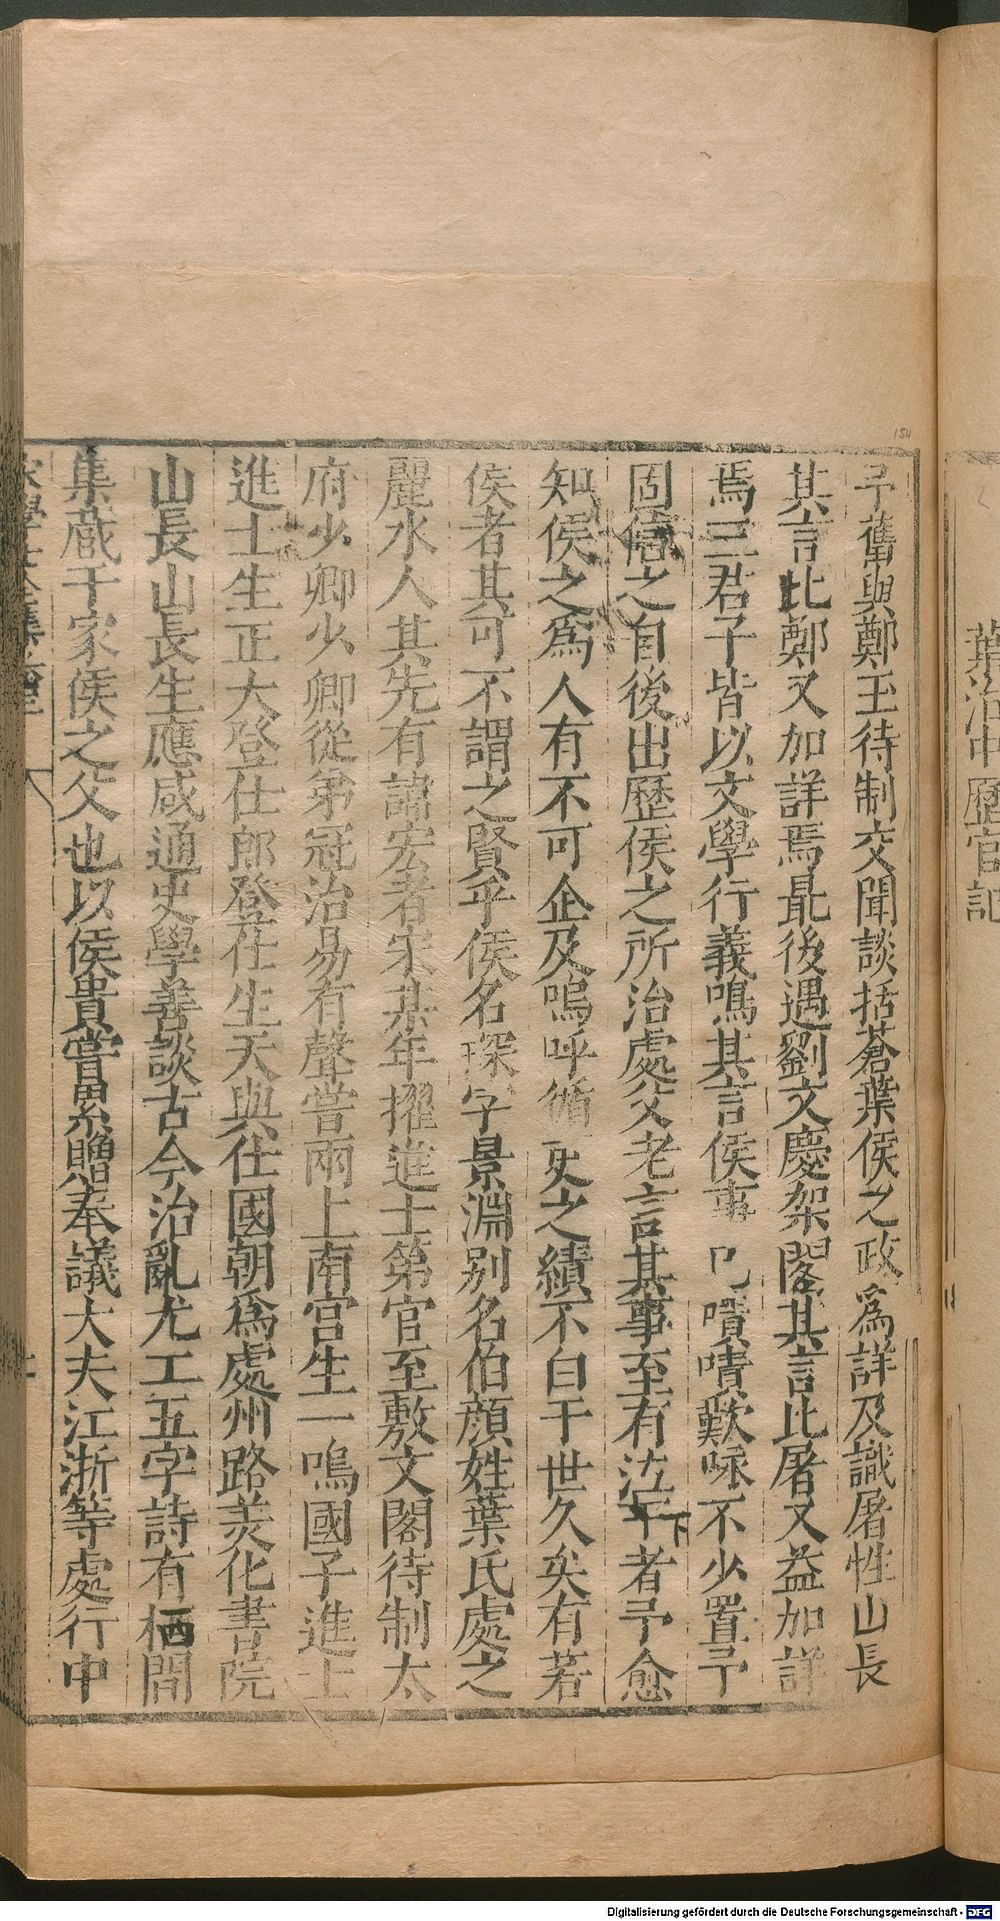 葉治中歷官記
予舊與鄭玉待制交聞談括蒼葉侯之政為詳及識屠性山長
其言比鄭又加詳焉最後遇劉文慶架閣其言比屠又益加詳
焉三君子皆以文學行義鳴其言侯事 嘖嘖歎咏不少置予
固信之自後出歷侯之所治處父老言其事至有泣下者予愈
知侯之為人有不可企及嗚呼循吏之績不白于世久矣有若
侯者其可不謂之賢乎侯名琛字景淵別名伯顔姓葉氏處之
麗水人其先有諱宏者宋某年擢進士第官至敷文閣待制太
府少卿少卿從弟冠治易有聲嘗兩上南宮生一鳴國子進士
進士生正大登仕郎登仕生天與仕國朝爲處州路美化書院
山長山長生應咸通史學善談古今治亂尤工五字詩有栖間
集蔵于家侯之父也以侯貴嘗累贈奉議大夫江浙等處行中
Digitalisierung gefördert durch die Deutsche Forschungsgemeinschaft - DFG